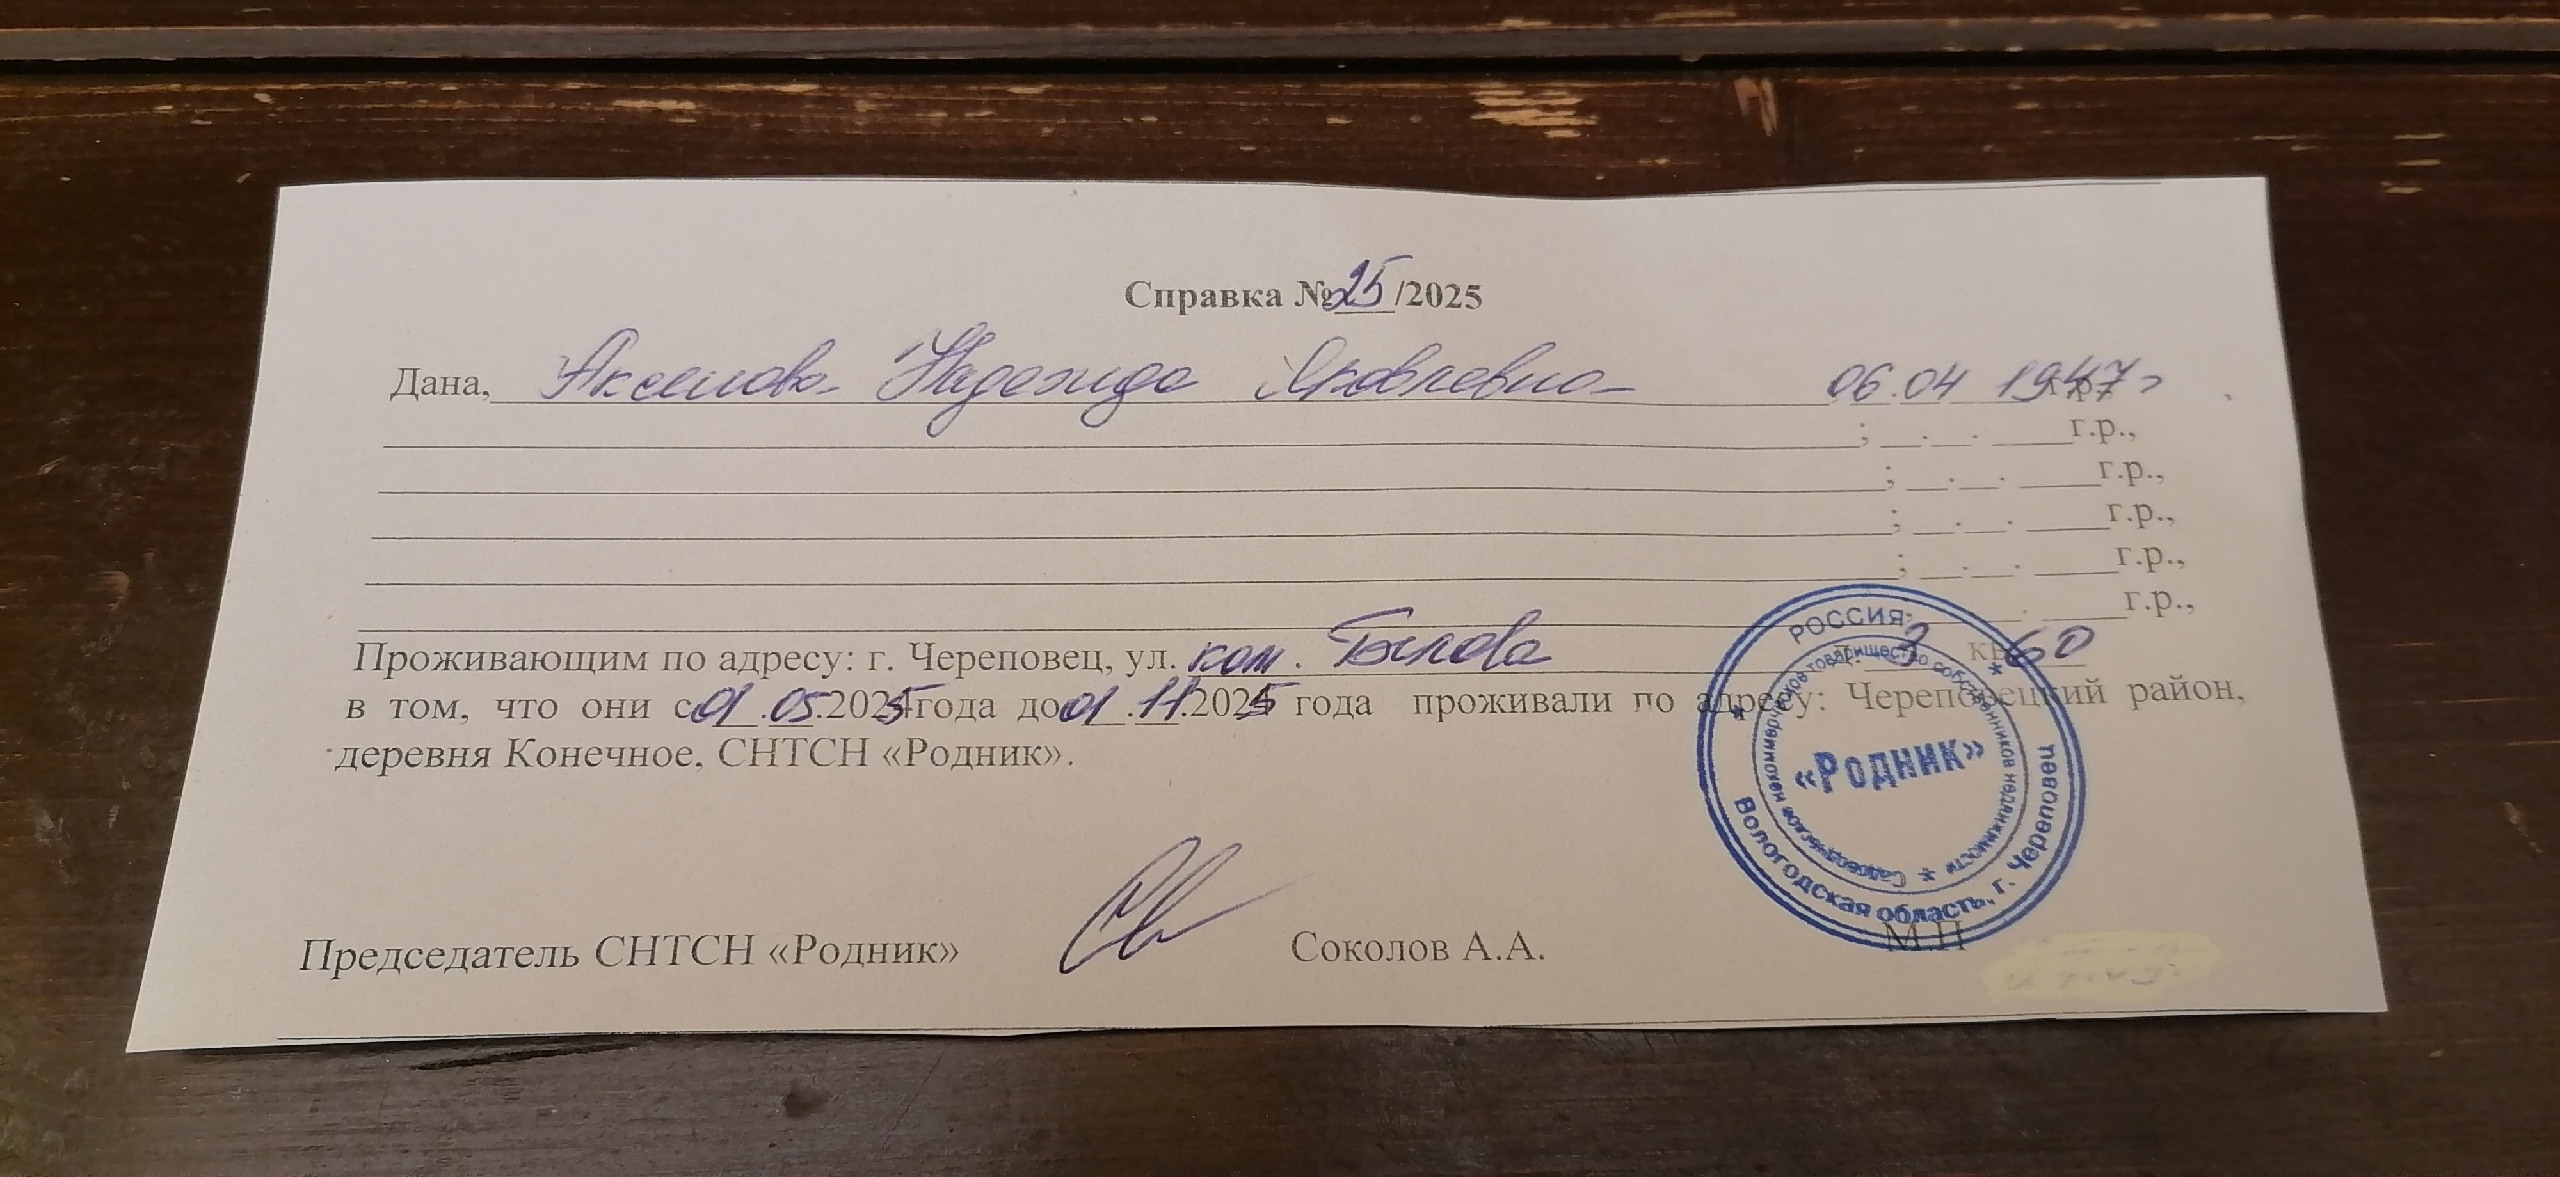 Справка №25/2025
Дана, Аксенова Надежда Яковлевна 06.04 1947г
; __.__. ____г.р.,
; __.__. ____г.р.,
; __.__. ____г.р.,
; __.__. ____г.р.,
. ____г.р.,
Проживающим по адресу: г. Череповец, ул. ком. Белова д. 3 кв 60
в том, что они с 01.05.2025 года до 01.11.2025 года проживали по адресу: Череповецкий район,
деревня Конечное, СНТСН «Родник».
Председатель СНТСН «Родник» Соколов А.А. М.П
РОССИЯ
Вологодская область, г. Череповец
Садоводческое некоммерческое товарищество собственников недвижимости
«Родник»